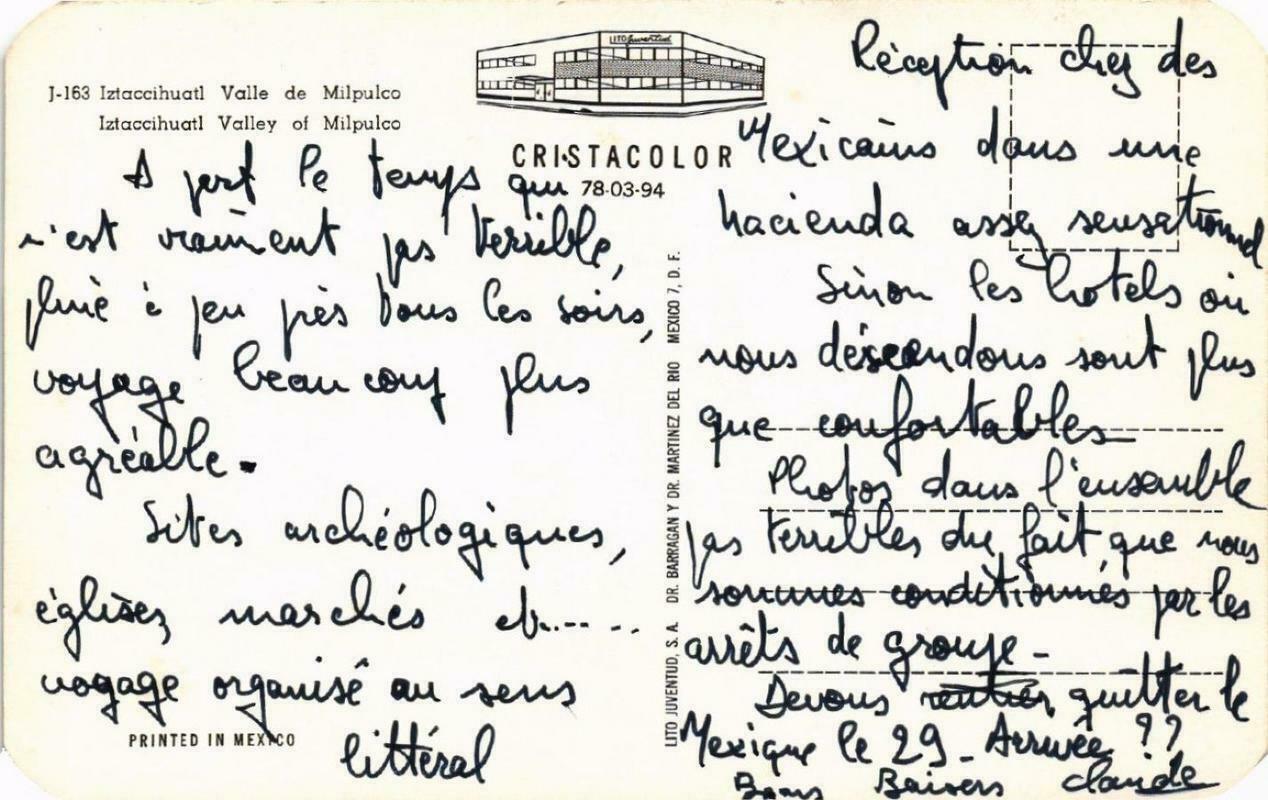 J-163 Iztaccihuatl Valle de Milpulco
Iztaccihuatl Valley of Milpulco
LITO Juventud
CRISTACOLOR
78-03-94
A part le temps qui
n'est vraiment pas terrible,
pluie à peu près tous les soirs,
voyage beaucoup plus
agréable.
Sites archéologiques,
églises, marchés etc.....
voyage organisé au sens
littéral
PRINTED IN MEXICO
LITO JUVENTUD, S. A. DR. BARRAGAN Y DR. MARTINEZ DEL RIO MEXICO 7, D. F.
Réception chez des
Mexicains dans une
hacienda assez sensationnel
Sinon les hotels où
nous descendons sont plus
que confortables
Photos dans l'ensemble
pas terribles du fait que nous
sommes conditionnés par les
arrêts de groupe -
Devons rentrer quitter le
Mexique le 29 - Arrivée ??
Bons Baisers Claude